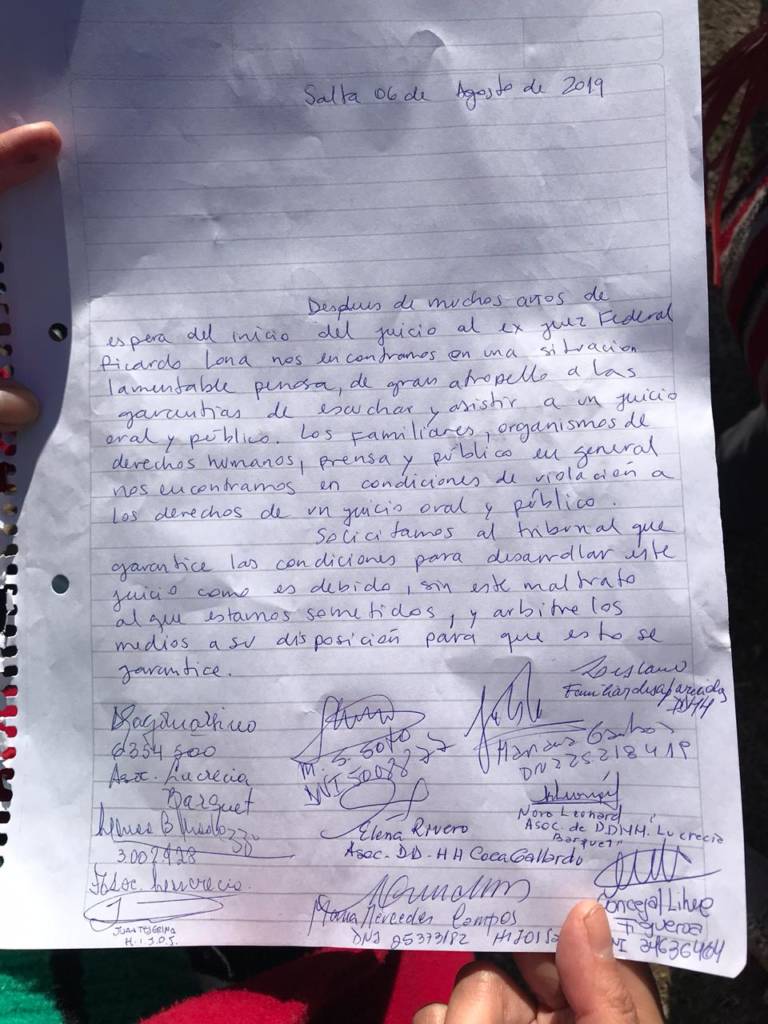 Salta 06 de Agosto de 2019
Despues de muchos años de
espera del inicio del juicio al ex juez Federal
Ricardo Lona nos encontramos en una situacion
lamentable penosa, de gran atropello a las
garantias de escuchar y asistir a un juicio
oral y público. Los Familiares, organismos de
derechos humanos, prensa y público en general
nos encontramos en condiciones de violación a
los derechos de un juicio oral y público.
Solicitamos al tribunal que
garantice las condiciones para desarrollar este
juicio como es debido, sin este maltrato
al que estamos sometidos, y arbitre los
medios a su disposición para que esto se
garantice.
Familiar desaparecidos
DDHH
6354500
Asoc. Lucrecia
Barquet
DNI 25218419
Nora Leonard
Asoc. de DDHH. Lucrecia
Barquet
Elena Rivero
Asoc. DD-HH Coca Gallardo
3.002928
Asoc. Lucrecia
Maria Mercedes Campos
DNI 25373182
Concejal Lihue
Figueroa
H.I.J.O.S.